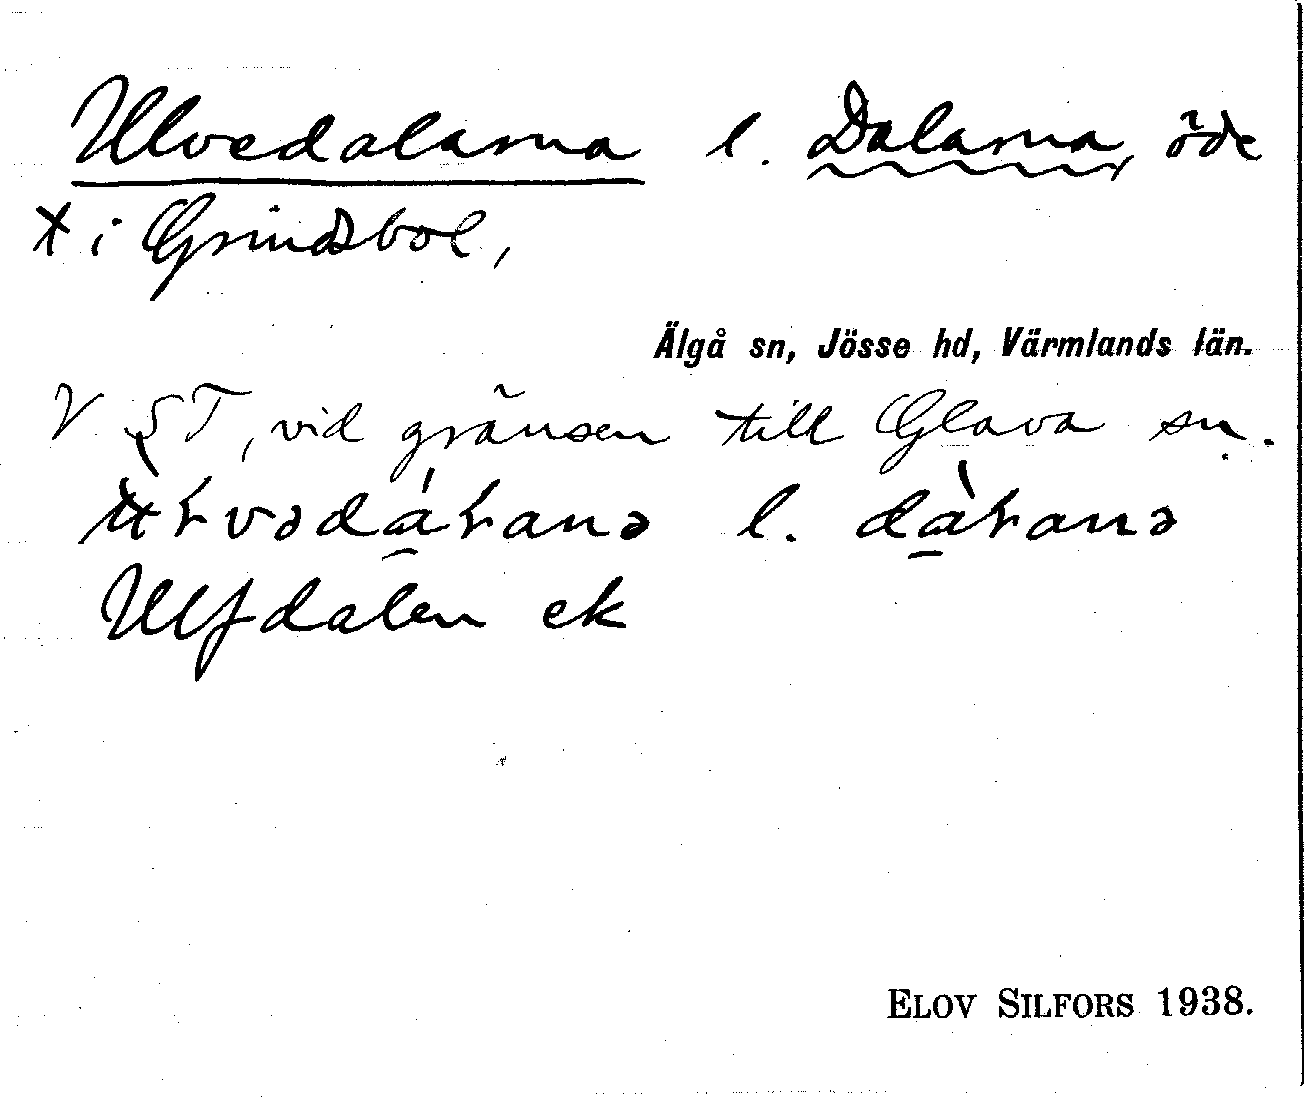 Ulvedalarna l. Dalarna, öde
t i Grindsbol,
Älgå sn, Jösse hd, Värmlands län.
V , vid gränsen till Glava sn.
l.
Ulfdalen ek
ELOV SILFORS 1938.